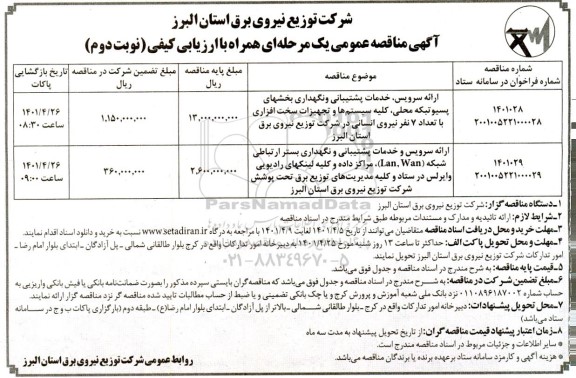 شرکت توزیع نیروی برق استان البرز
آگهی مناقصه عمومی یک مرحله‌ای همراه با ارزیابی کیفی (نوبت دوم)
شماره مناقصه
شماره فراخوان در سامانه ستاد
موضوع مناقصه
مبلغ پایه مناقصه
مبلغ تضمین شرکت در مناقصه
تاریخ بازگشایی
پاکات
۱۴۰۱-۲۸
۲۰۰۱۰۰۵۲۲۱۰۰۰۰۲۸
ارائه سرویس، خدمات پشتیبانی ونگهداری بخشهای
پسیو شبکه محلی، کلیه سیستم‌ها و تجهیزات سخت افزاری
با تعداد ۷ نفر نیروی انسانی در شرکت توزیع نیروی برق
استان البرز
۱۳,۰۰۰,۰۰۰,۰۰۰
۱,۱۵۰,۰۰۰,۰۰۰
۱۴۰۱/۴/۲۶
ساعت ۰۸:۳۰
۱۴۰۱-۲۹
۲۰۰۱۰۰۵۲۲۱۰۰۰۰۲۹
ارائه سرویس و خدمات پشتیبانی و نگهداری بستر ارتباطی
شبکه (Lan, Wan)، مراکز داده و کلیه لینکهای رادیویی
وایرلس در ستاد و کلیه مدیریت‌های توزیع برق تحت پوشش
شرکت توزیع نیروی برق استان البرز
۲,۶۰۰,۰۰۰,۰۰۰
۳۶۰,۰۰۰,۰۰۰
۱۴۰۱/۴/۲۶
ساعت ۰۹:۰۰
۱-دستگاه مناقصه گزار: شرکت توزیع نیروی برق استان البرز
۲-شرایط لازم: ارائه تائیدیه و مدارک و مستندات مربوطه طبق شرایط مندرج در اسناد مناقصه
۳-مهلت خرید و محل دریافت اسناد مناقصه: متقاضیان می‌توانند از تاریخ ۱۴۰۱/۴/۵ لغایت ۱۴۰۱/۴/۹ با مراجعه به درگاه www.setadiran.ir نسبت به خرید و دانلود اسناد اقدام نمایند.
۴-مهلت و محل تحویل پاکت الف: حداکثر تا ساعت ۱۳ روز شنبه مورخ ۱۴۰۱/۴/۲۵ به دبیرخانه امور تدارکات واقع در کرج بلوار طالقانی شمالی - پل آزادگان - ابتدای بلوار امام رضا -
امور تدارکات شرکت توزیع نیروی برق استان البرز تحویل نمایند.
۵-قیمت پایه مناقصه: به شرح مندرج در اسناد مناقصه و جدول فوق می‌باشد.
۶-مبلغ تضمین شرکت در مناقصه: به شرح مندرج در اسناد مناقصه و جدول فوق می‌باشد که مناقصه‌گران بایستی سپرده مذکور را بصورت ضمانت‌نامه بانکی یا فیش بانکی واریزی به
حساب شماره ۰۱۱۰۸۹۶۱۸۷۰۰۲ نزد بانک ملی شعبه آموزش و پرورش کرج و یا چک بانکی تضمینی و یا ضبط از حساب مطالبات تایید شده مناقصه گر نزد مناقصه گزار ارائه نمایند.
۷-محل تحویل پیشنهادات: دبیرخانه امور تدارکات واقع در کرج - بلوار طالقانی شمالی - بالاتر از پل آزادگان - ابتدای بلوار امام رضا(ع) - طبقه دوم (بارگزاری پاکات ب و ج در سامانه
ستاد می‌باشد)
۸-زمان اعتبار پیشنهاد قیمت مناقصه گران: از تاریخ تحویل پیشنهاد به مدت سه ماه
* سایر اطلاعات و جزئیات مربوط در اسناد مناقصه مندرج است.
* هزینه آگهی و کارمزد سامانه ستاد برعهده برنده یا برندگان مناقصه می‌باشد.
روابط عمومی شرکت توزیع نیروی برق استان البرز
ParsNamadData
۰۲۱-۸۸۳۴۹۶۷۰-۵